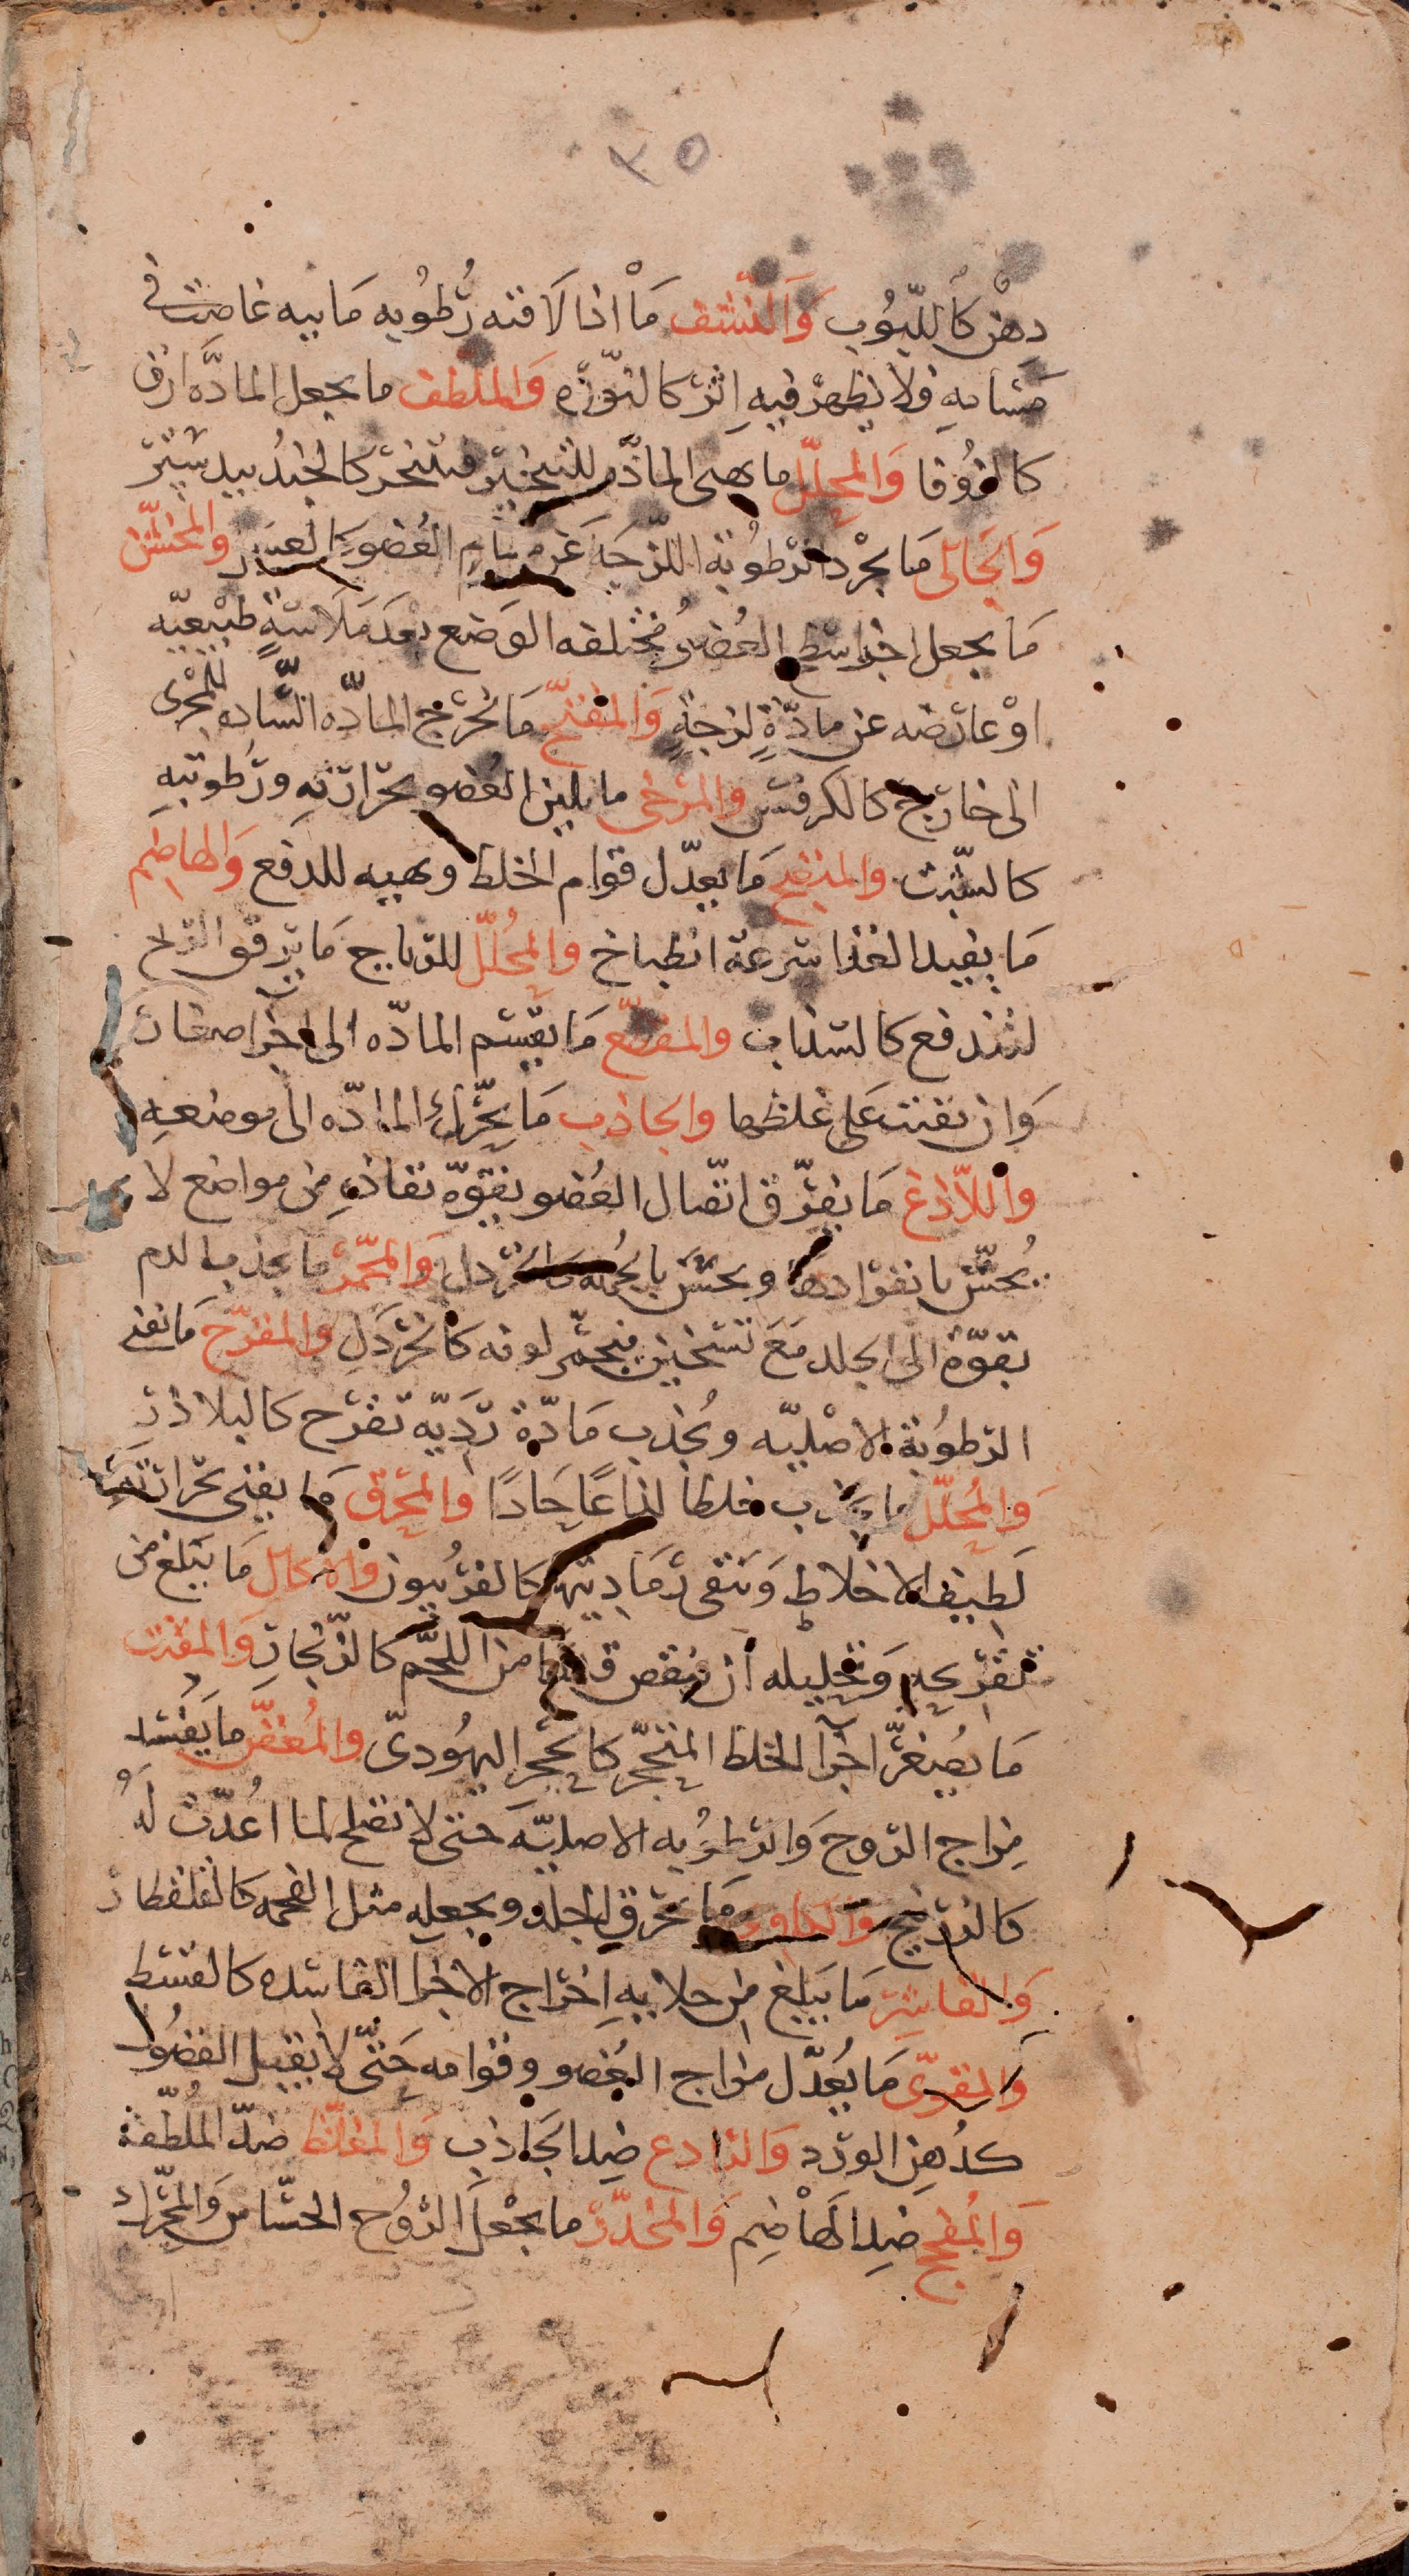 ٢٥
دهن كاللبوب والمنشف ما اذا لاقته رطوبه ماييه غاصت في
مسامه فلا يظهر فيه اثر كالنورة والملطف ما يجعل المادّه ارق
كالزوفا والمحلّل ما يهيى المادّه للتبخير فتتبخر كالجند بيدستر
والجالى ما يجرد الرطوبة اللزجه عن مسام العضو كالعسل والمخشّن
ما يجعل اجزا سطح العضو مختلفه الوضع بعد ملاسةٍ طبيعيّه
اوْ عارضه عن مادّةٍ لزجةٍ والمفتّح ما يخرج المادّه السّاده للمجرى
الى خارج كالكرفس والمرخى ما يلين العضو بحرارته ورطوبته
كالشّبت والمنضج ما يعدّل قوام الخلط ويهييه للدفع والهاضم
ما يفيد الغذا سرعة انطباخ والمحُلّل للرياح ما يرقق الريح
لتندفع كالسذاب والمقطّع ما يقسم المادّه الى اجزا صغار
وان بقيت على غلظها والجاذب ما يحّرك المادّه الى موضعه
واللاّذغ ما يفرّق اتصال العضو بقوّة نفاذه في مواضع لا
يُحسّ بانفرادها ويحسّ بالجُمله كالخردل والمحمّر ما يجذب الدم
بقوّة الى الجلد مع تسخين فيحمّر لونه كالخردل والمقرّح ما يفنى
الرطوبة الاصليّه ويجذب مادّة رديّه تقرح كالبلاذر
والمحُلّل ما يجذب خلطا لذاعًا حادًا والمحرق ما يفنى بحرارته
لطيف الاخلاط وتبقى رماديتها كالفربيون والاكال ما يبلغ من
تقريحه وتحليله ان ينقص قدرا من اللحم كالزنجار والمفتت
ما يصغّر اجزا الخلط المتحجّر كالحجر اليهُودىّ والمُعفّن ما يفسد
مزاج الروح والرطوبه الاصليّه حتى لا تصلح لما اعُدّت لهُ
كالزرنيخ والكاوى ما يحرق الجلد ويجعله مثل الفحمه كالقلقطار
والقاشر ما يبلغ من جلاييه اخراج الاجزا الفاسده كالقسط
والمقوّى ما يُعدّل مزاج العُضو وقوامه حتّى لا يقبل الفضُول
كدُهن الورد والرادع ضد الجاذب والمغلّظ ضدّ المُلطّف
والمُفجج ضد الهاضم والمخدّر ما يجْعل الرُوح الحسّاس والمحّرك